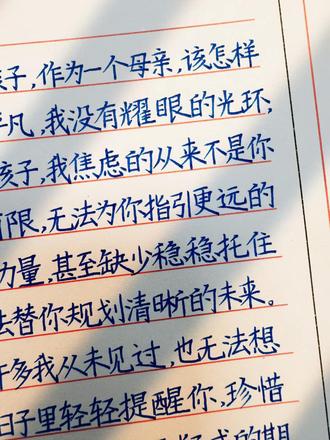 孩子,作为一个母亲,该怎样
平凡,我没有耀眼的光环,
孩子,我焦虑的从来不是你
有限,无法为你指引更远的
力量,甚至缺少稳稳托住
法替你规划清晰的未来。
许多我从未见过,也无法想
日子里轻轻提醒你,珍惜
的期